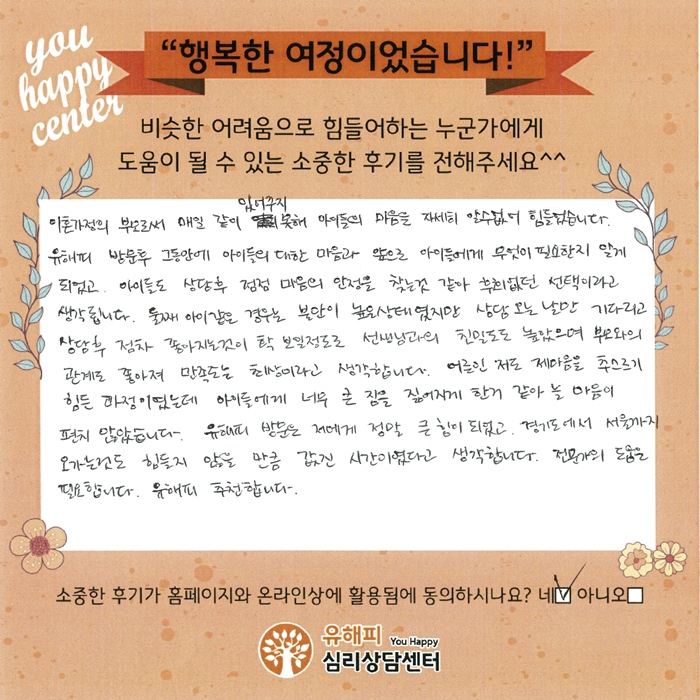 you
happy
center
“행복한 여정이었습니다!”
비슷한 어려움으로 힘들어하는 누군가에게
도움이 될 수 있는 소중한 후기를 전해주세요^^
있어주지
이혼가정의 부모로써 매일 같이 못해 아이들의 마음을 자세히 알수없어 힘들었습니다.
유해피 방문후 그동안에 아이들의 대한 마음과 앞으로 아이들에게 무엇이 필요한지 알게
되었고. 아이들도 상담후 점점 마음의 안정을 찾는것 같아 후회없던 선택이라고
생각됩니다. 둘째 아이같은 경우는 불안이 높은상태였지만 상담 오는 날만 기다리고
상담후 점차 좋아지는것이 딱 보일정도로 선생님과의 친밀도도 높았으며 부모와의
관계도 좋아져 만족도는 최상이라고 생각합니다. 어른인 저도 제마음을 추스르기
힘든 과정이였는데 아이들에게 너무 큰 짐을 짊어지게 한거 같아 늘 마음이
편치 않았습니다. 유해피 방문은 저에게 정말 큰 힘이 되었고. 경기도에서 서울까지
오가는것도 힘들지 않을 만큼 값진 시간이였다고 생각합니다. 전문가의 도움은
필요합니다. 유해피 추천합니다.
소중한 후기가 홈페이지와 온라인상에 활용됨에 동의하시나요? 네 아니오
유해피 You Happy
심리상담센터